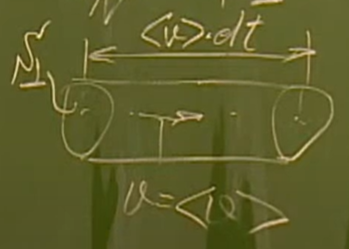 <v>·dt
S⊥
v=<v>